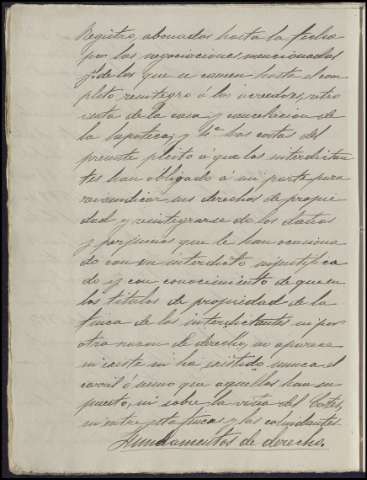 Registro, abonados hasta la fecha
por las negociaciones mencionadas
y de los que se causen hasta el com
pleto reintegro á los acreedores, retro
venta de la casa y cancelacion de
la hipoteca; y 4º las costas del
presente pleito á que los interdictan
tes han obligado á mi parte para
reivindicar sus derechos de propie
dad y reintegrarse de los daños
y perjuicios que le han ocasiona
do con su interdicto injustifica
do y con conocimiento de que en
los títulos de propiedad de la
finca de los interdictantes ni por
otra razon de derecho, no aparece
ni existe ni ha existido nunca el
carril ó senio que aquellos han su
puesto, ni sobre la viña del
ni entre esta finca y las colindantes.
Fundamentos de derecho.